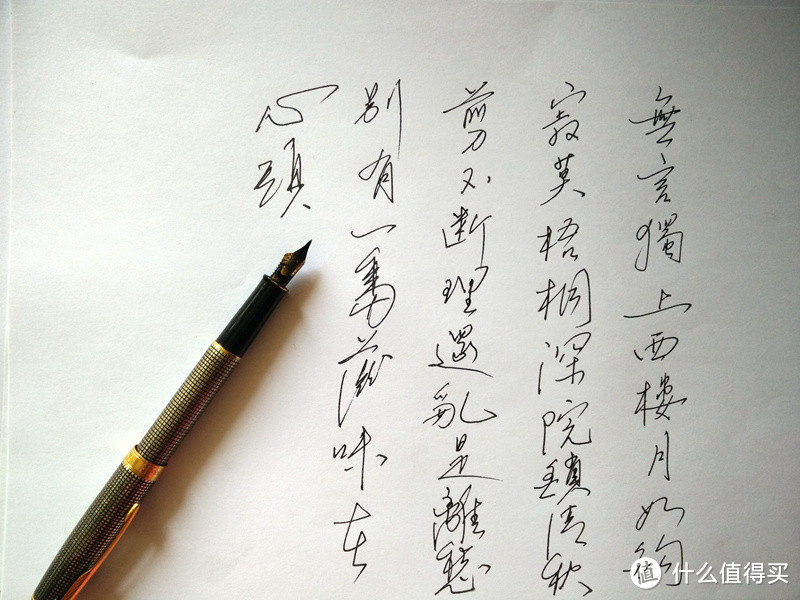 無言獨上西樓月如鉤
寂莫梧桐深院鎖清秋
剪不斷理還亂是離愁
別有一番滋味在
心頭
值 什么值得买